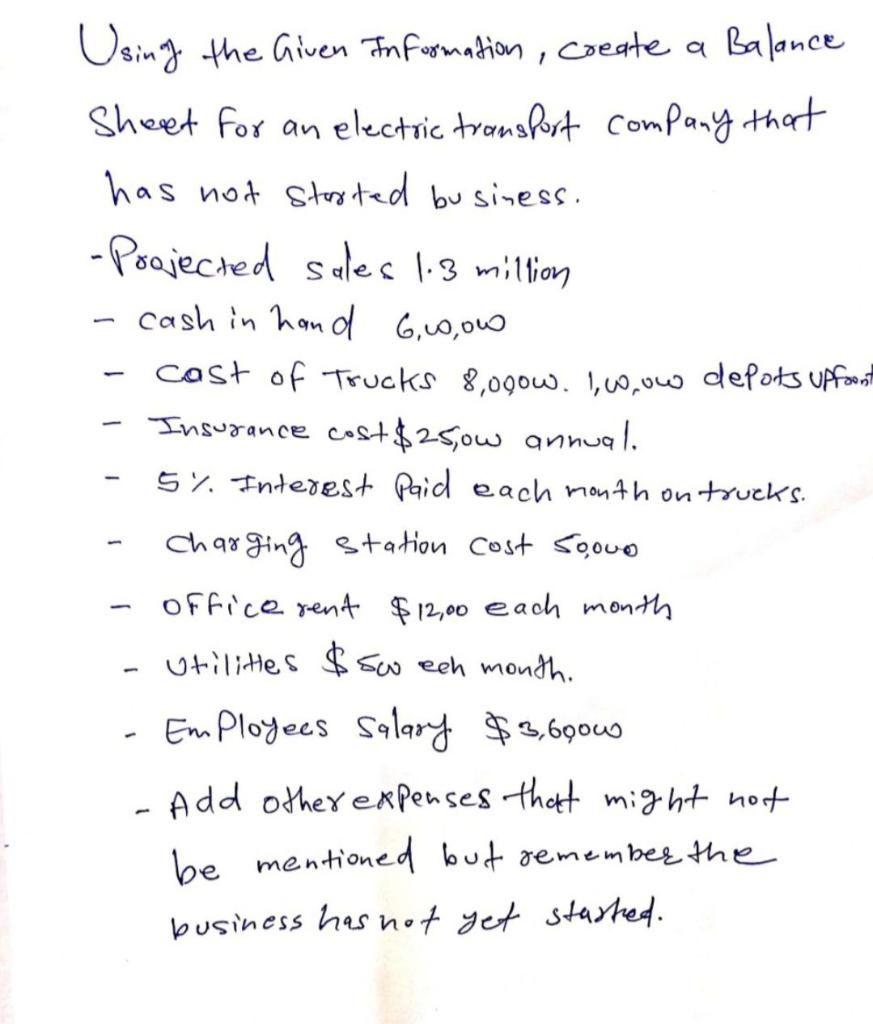 Using the Given Information, create a Balance
Sheet for an electric transport company that
has not started business.
- Projected sales 1.3 million
- cash in hand 6,00,000
- cost of Trucks 8,00000. 1,00,000 depots upfront
- Insurance cost $25,000 annual.
- 5% Interest Paid each month on trucks.
- charging station cost 50,000
- office rent $12,00 each month
- Utilities $500 eeh month.
- Employees Salary $3,60000
- Add other expenses that might not
be mentioned but remember the
business has not yet started.